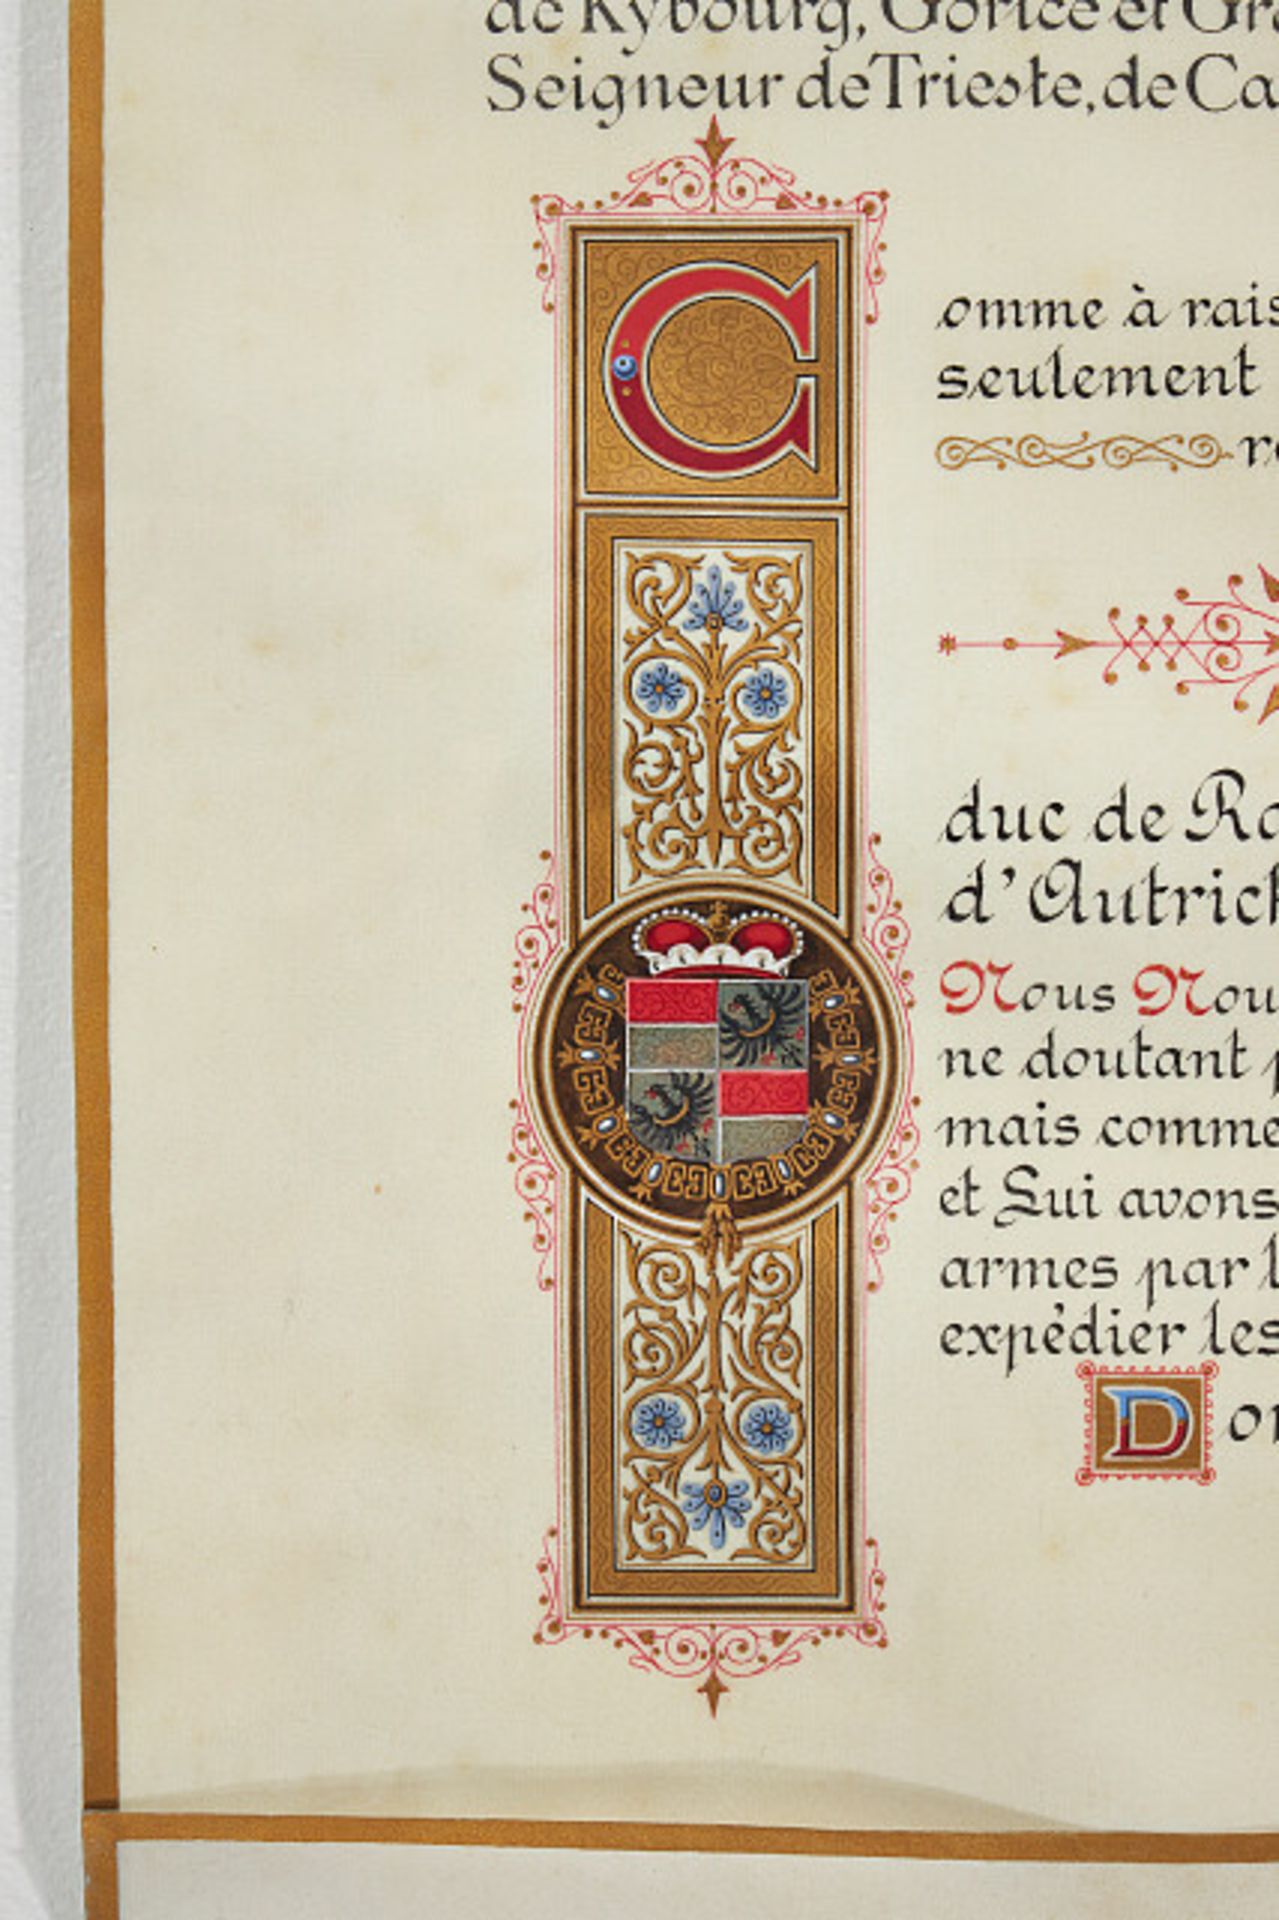 de Kybourg, Gorice et Gra
Seigneur de Trieste, de Ca
Comme à rais
seulement
re
duc de Ra
d'Autrich
Nous Nou
ne doutant p
mais comme
et Lui avons
armes par l
expédier les
Don